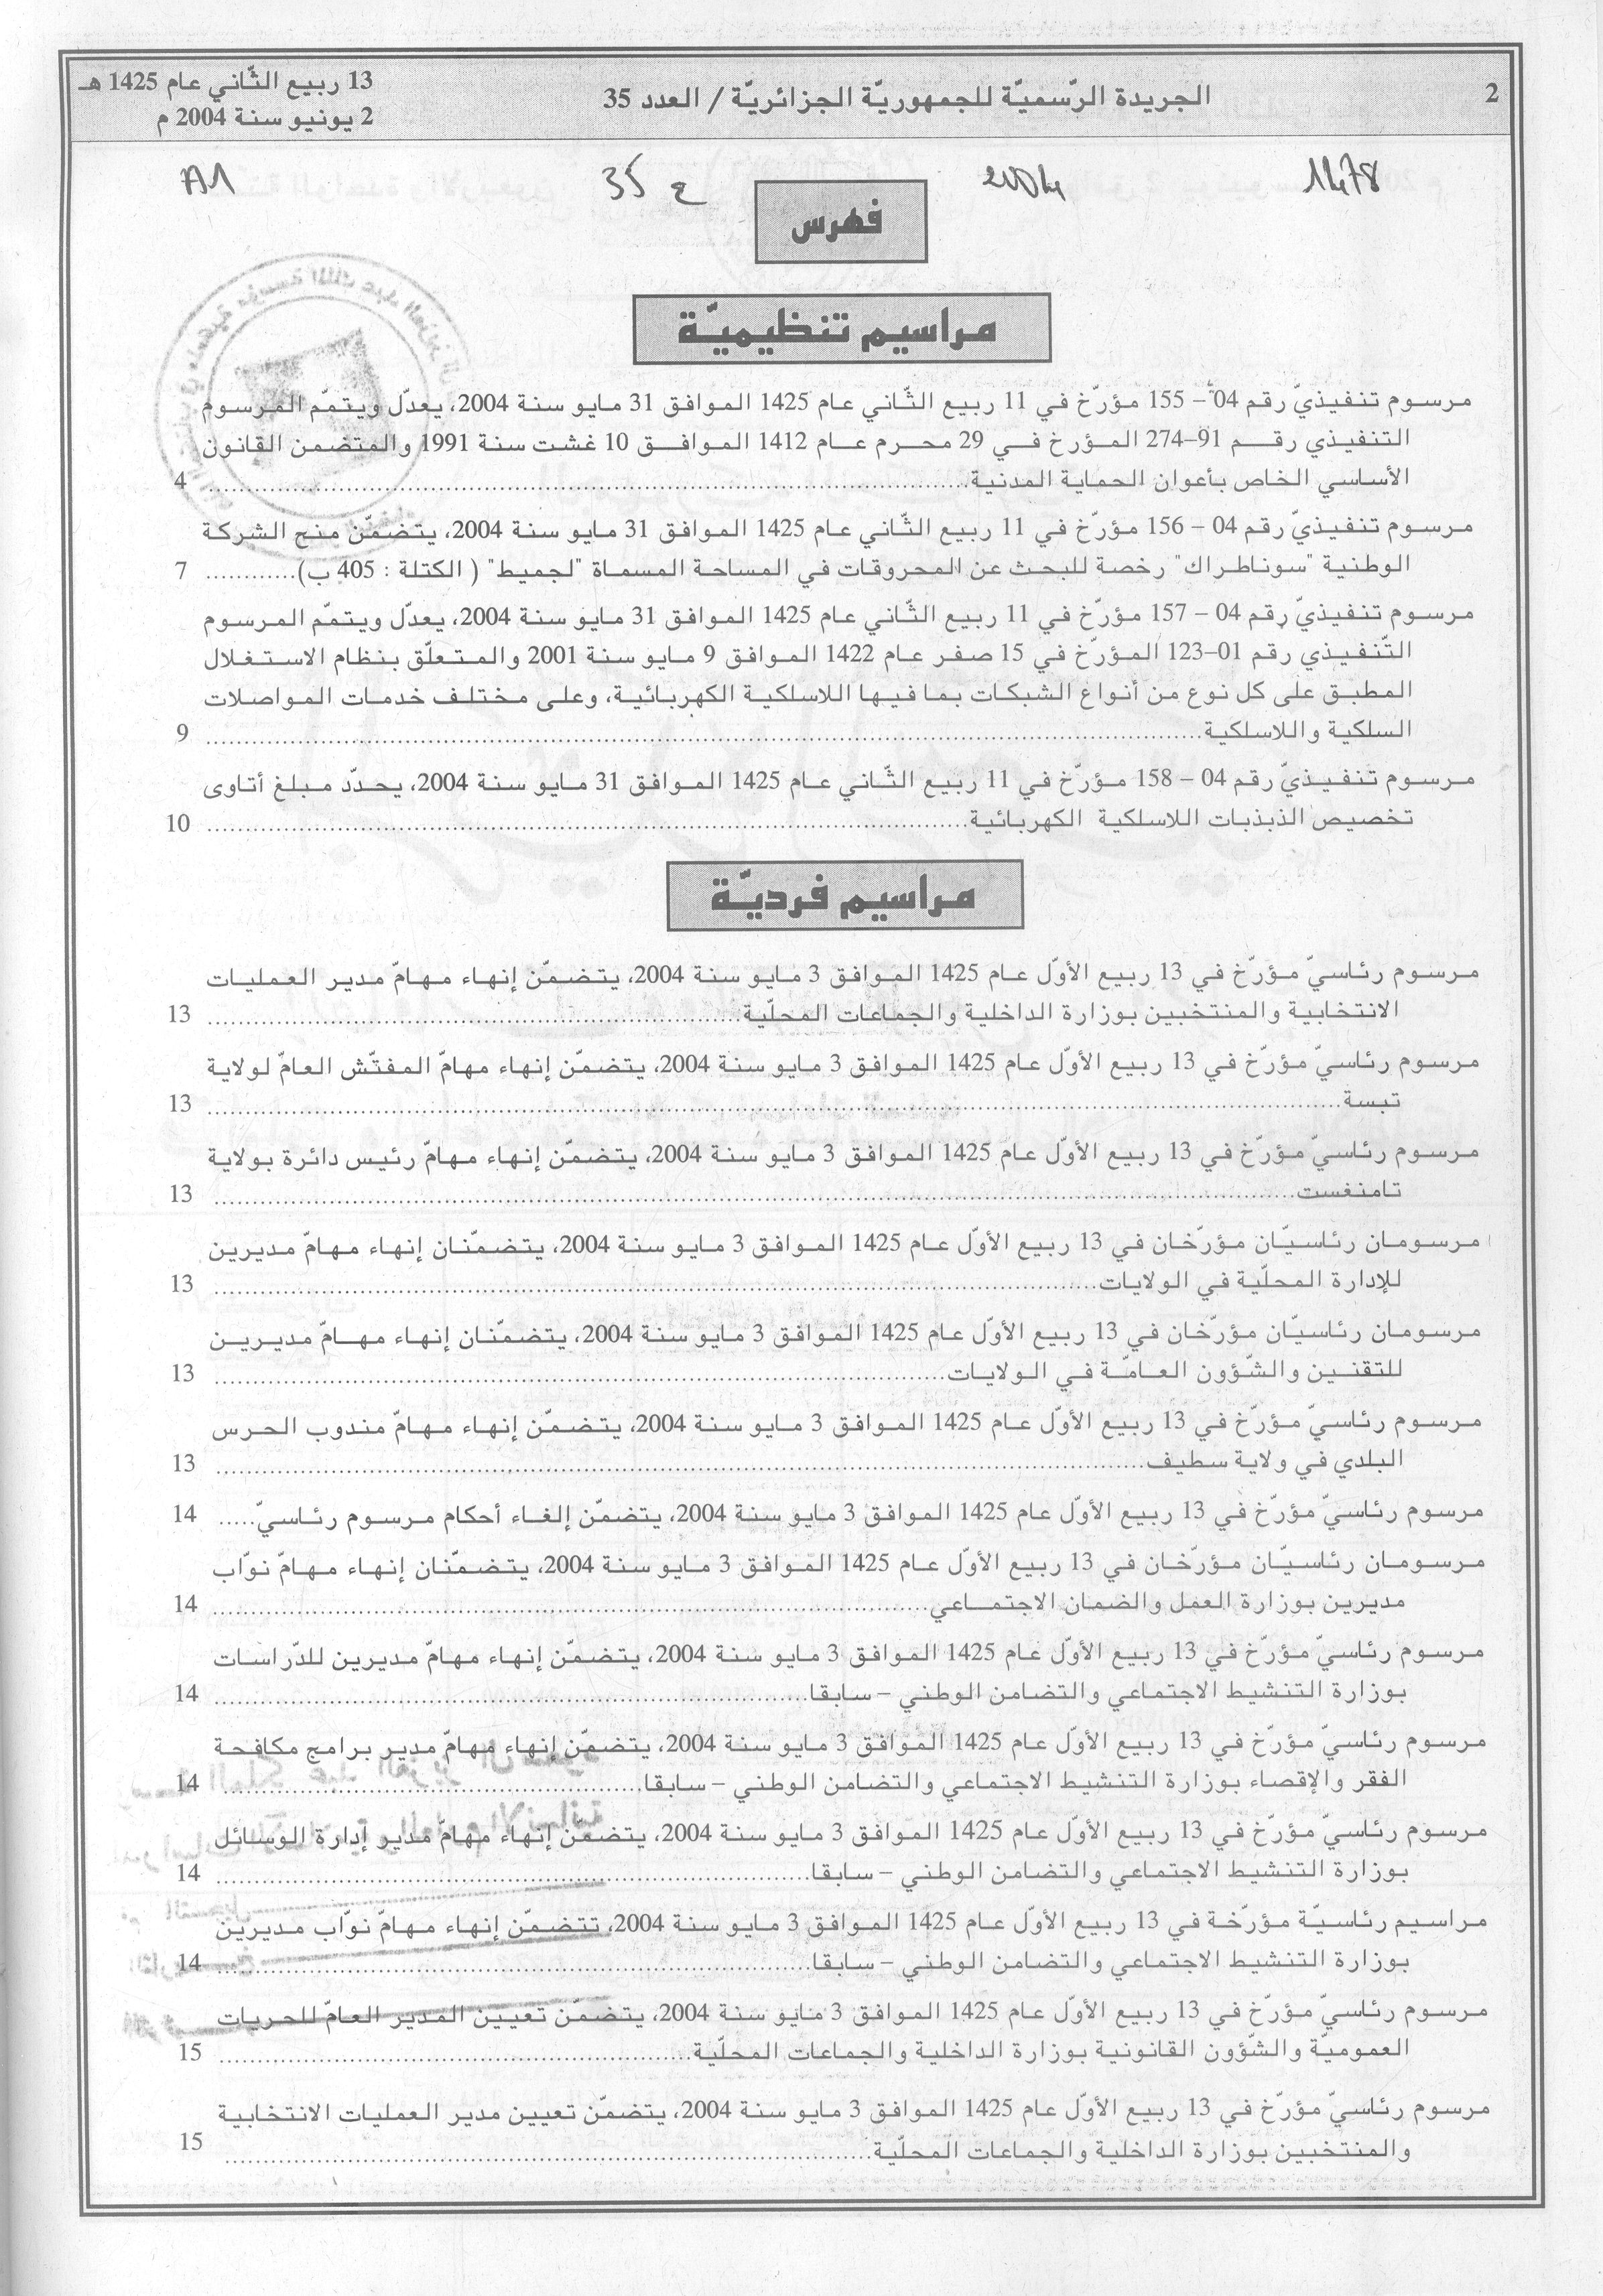 2
الجريدة الرّسميّة للجمهوريّة الجزائريّة / العدد 35
13 ربيع الثّاني عام 1425 هـ
2 يونيو سنة 2004 م
1478
2004
ع 35
A1
فهرس
مراسيم تنظيميّة
مرسوم تنفيذيّ رقم 04 – 155 مؤرّخ في 11 ربيع الثّاني عام 1425 الموافق 31 مايو سنة 2004، يعدّل ويتمّم المرسوم
التنفيذي رقم 91–274 المؤرخ في 29 محرم عام 1412 الموافق 10 غشت سنة 1991 والمتضمن القانون
الأساسي الخاص بأعوان الحماية المدنية 4
مرسوم تنفيذيّ رقم 04 – 156 مؤرّخ في 11 ربيع الثّاني عام 1425 الموافق 31 مايو سنة 2004، يتضمّن منح الشركة
الوطنية "سوناطراك" رخصة للبحث عن المحروقات في المساحة المسماة "لجميط" ( الكتلة : 405 ب) 7
مرسوم تنفيذيّ رقم 04 – 157 مؤرّخ في 11 ربيع الثّاني عام 1425 الموافق 31 مايو سنة 2004، يعدّل ويتمّم المرسوم
التّنفيذي رقم 01–123 المؤرّخ في 15 صفر عام 1422 الموافق 9 مايو سنة 2001 والمتعلّق بنظام الاستغلال
المطبق على كل نوع من أنواع الشبكات بما فيها اللاسلكية الكهربائية، وعلى مختلف خدمات المواصلات
السلكية واللاسلكية 9
مرسوم تنفيذيّ رقم 04 – 158 مؤرّخ في 11 ربيع الثّاني عام 1425 الموافق 31 مايو سنة 2004، يحدّد مبلغ أتاوى
تخصيص الذبذبات اللاسلكية الكهربائية 10
مراسيم فرديّة
مرسوم رئاسيّ مؤرّخ في 13 ربيع الأوّل عام 1425 الموافق 3 مايو سنة 2004، يتضمّن إنهاء مهامّ مدير العمليات
الانتخابية والمنتخبين بوزارة الداخلية والجماعات المحلّية 13
مرسوم رئاسيّ مؤرّخ في 13 ربيع الأوّل عام 1425 الموافق 3 مايو سنة 2004، يتضمّن إنهاء مهامّ المفتّش العامّ لولاية
تبسة 13
مرسوم رئاسيّ مؤرّخ في 13 ربيع الأوّل عام 1425 الموافق 3 مايو سنة 2004، يتضمّن إنهاء مهامّ رئيس دائرة بولاية
تامنغست 13
مرسومان رئاسيّان مؤرّخان في 13 ربيع الأوّل عام 1425 الموافق 3 مايو سنة 2004، يتضمّنان إنهاء مهامّ مديرين
للإدارة المحلّية في الولايات 13
مرسومان رئاسيّان مؤرّخان في 13 ربيع الأوّل عام 1425 الموافق 3 مايو سنة 2004، يتضمّنان إنهاء مهامّ مديرين
للتقنين والشّؤون العامّة في الولايات 13
مرسوم رئاسيّ مؤرّخ في 13 ربيع الأوّل عام 1425 الموافق 3 مايو سنة 2004، يتضمّن إنهاء مهامّ مندوب الحرس
البلدي في ولاية سطيف 13
مرسوم رئاسيّ مؤرّخ في 13 ربيع الأوّل عام 1425 الموافق 3 مايو سنة 2004، يتضمّن إلغاء أحكام مرسوم رئاسيّ 14
مرسومان رئاسيّان مؤرّخان في 13 ربيع الأوّل عام 1425 الموافق 3 مايو سنة 2004، يتضمّنان إنهاء مهامّ نوّاب
مديرين بوزارة العمل والضمان الاجتماعي 14
مرسوم رئاسيّ مؤرّخ في 13 ربيع الأوّل عام 1425 الموافق 3 مايو سنة 2004، يتضمّن إنهاء مهامّ مديرين للدّراسات
بوزارة التنشيط الاجتماعي والتضامن الوطني – سابقا 14
مرسوم رئاسيّ مؤرّخ في 13 ربيع الأوّل عام 1425 الموافق 3 مايو سنة 2004، يتضمّن إنهاء مهامّ مدير برامج مكافحة
الفقر والإقصاء بوزارة التنشيط الاجتماعي والتضامن الوطني – سابقا 14
مرسوم رئاسيّ مؤرّخ في 13 ربيع الأوّل عام 1425 الموافق 3 مايو سنة 2004، يتضمّن إنهاء مهامّ مدير إدارة الوسائل
بوزارة التنشيط الاجتماعي والتضامن الوطني – سابقا 14
مراسيم رئاسيّة مؤرّخة في 13 ربيع الأوّل عام 1425 الموافق 3 مايو سنة 2004، تتضمّن إنهاء مهامّ نوّاب مديرين
بوزارة التنشيط الاجتماعي والتضامن الوطني – سابقا 14
مرسوم رئاسيّ مؤرّخ في 13 ربيع الأوّل عام 1425 الموافق 3 مايو سنة 2004، يتضمّن تعيين المدير العامّ للحريات
العموميّة والشّؤون القانونية بوزارة الداخلية والجماعات المحلّية 15
مرسوم رئاسيّ مؤرّخ في 13 ربيع الأوّل عام 1425 الموافق 3 مايو سنة 2004، يتضمّن تعيين مدير العمليات الانتخابية
والمنتخبين بوزارة الداخلية والجماعات المحلّية 15